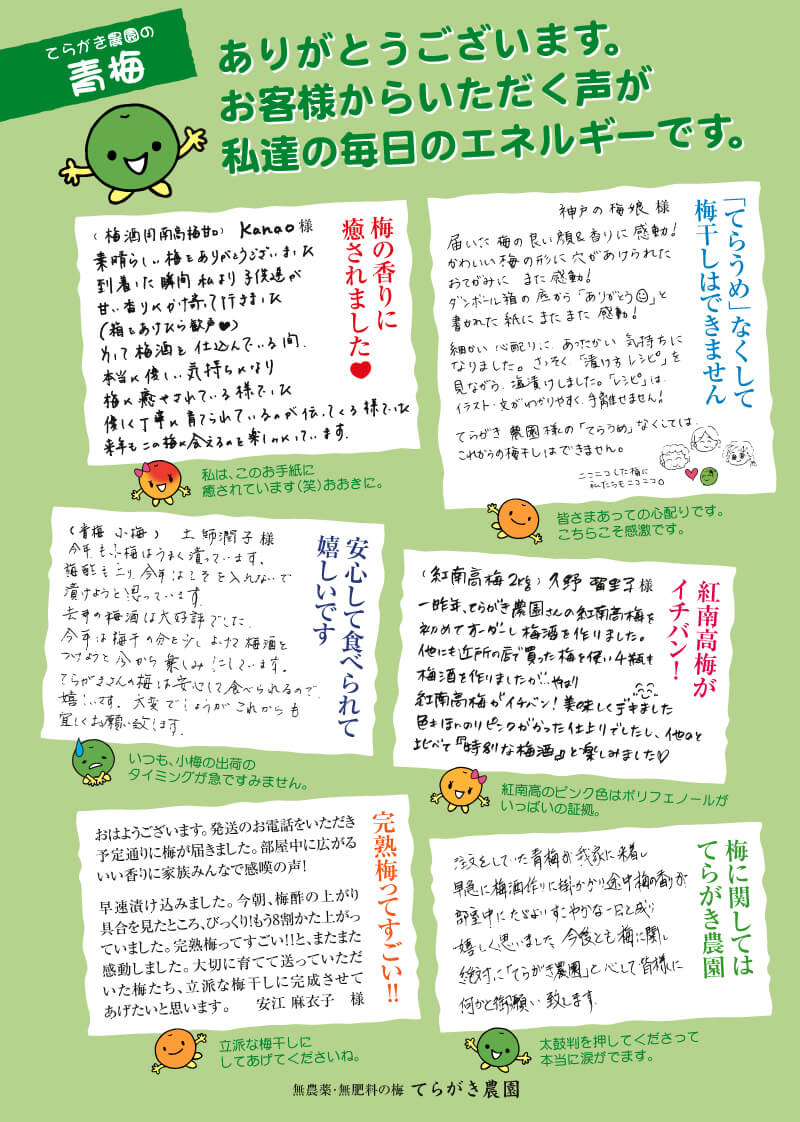 てらがき農園の
青梅
ありがとうございます。
お客様からいただく声が
私達の毎日のエネルギーです。
梅の香りに
癒されました♥
(梅酒用南高梅甘口) Kanao様
素晴らしい梅をありがとうございました
到着した瞬間 私より子供達が
甘い香りにかけ寄って行きました
(箱をあけたら歓声♥)
本当に優しい気持ちになり
梅に癒やされている様でした
私は、このお手紙に
癒されています(笑)おおきに。
「てらうめ」なくして
梅干しはできません
神戸の梅娘 様
届いた梅の良い顔&香りに感動!
かわいい梅の形に穴があけられた
おてがみに また感動!
ダンボール箱の底から「ありがとう☺」と
書かれた紙にまたまた感動!
細かい心配りに、あったかい気持ちに
なりました。さっそく「漬け方レシピ」を
見ながら、塩漬けしました。「レシピ」は、
イラスト・文がわかりやすく、手離せません!
てらがき農園様の「てらうめ」なくしては、
これからの梅干しはできません。
ニコニコした梅に
私たちもニコニコ。
皆さまあっての心配りです。
こちらこそ感激です。
安心して食べられて
嬉しいです
(青梅 小梅) 土師潤子様
今年も小梅はうまく漬っています。
漬けようと思っています。
去年の梅酒は大好評でした。
今年は梅干の分を少しよけて梅酒を
つけようと今から楽しみにしています。
てらがきさんの梅は安心して食べられるので、
嬉しいです。大変でしょうがこれからも
宜しくお願い致します。
いつも、小梅の出荷の
タイミングが急ですみません。
紅南高梅が
イチバン!
(紅南高梅2kg) 久野 瑠里子様
一昨年、てらがき農園さんの紅南高梅を
初めてオーダーし梅酒を作りました。
他にも近所の店で買った梅を使い4瓶も
梅酒を作りましたが…やはり
紅南高梅がイチバン!美味しくデキました
色もほんのりピンクがかった仕上りでしたし、他のと
比べて『特別な梅酒』と楽しみました♡
紅南高のピンク色はポリフェノールが
いっぱいの証拠。
完熟梅ってすごい!!
おはようございます。発送のお電話をいただき
予定通りに梅が届きました。部屋中に広がる
いい香りに家族みんなで感嘆の声!
早速漬け込みました。今朝、梅酢の上がり
具合を見たところ、びっくり!もう8割かた上がっ
ていました。完熟梅ってすごい!!と、またまた
感動しました。大切に育てて送っていただ
いた梅たち、立派な梅干しに完成させて
あげたいと思います。 安江 麻衣子 様
立派な梅干しに
してあげてくださいね。
梅に関しては
てらがき農園
注文をしていた青梅が我家に来着し
早急に梅酒作りに掛かかり途中梅の香りが
部屋中にただよいすこやかな一日と成り
嬉しく思いました 今後とも梅に関し
絶対に「てらがき農園」と心して皆様に
何かと御願い致します。
太鼓判を押してくださって
本当に涙がでます。
無農薬・無肥料の梅 てらがき農園